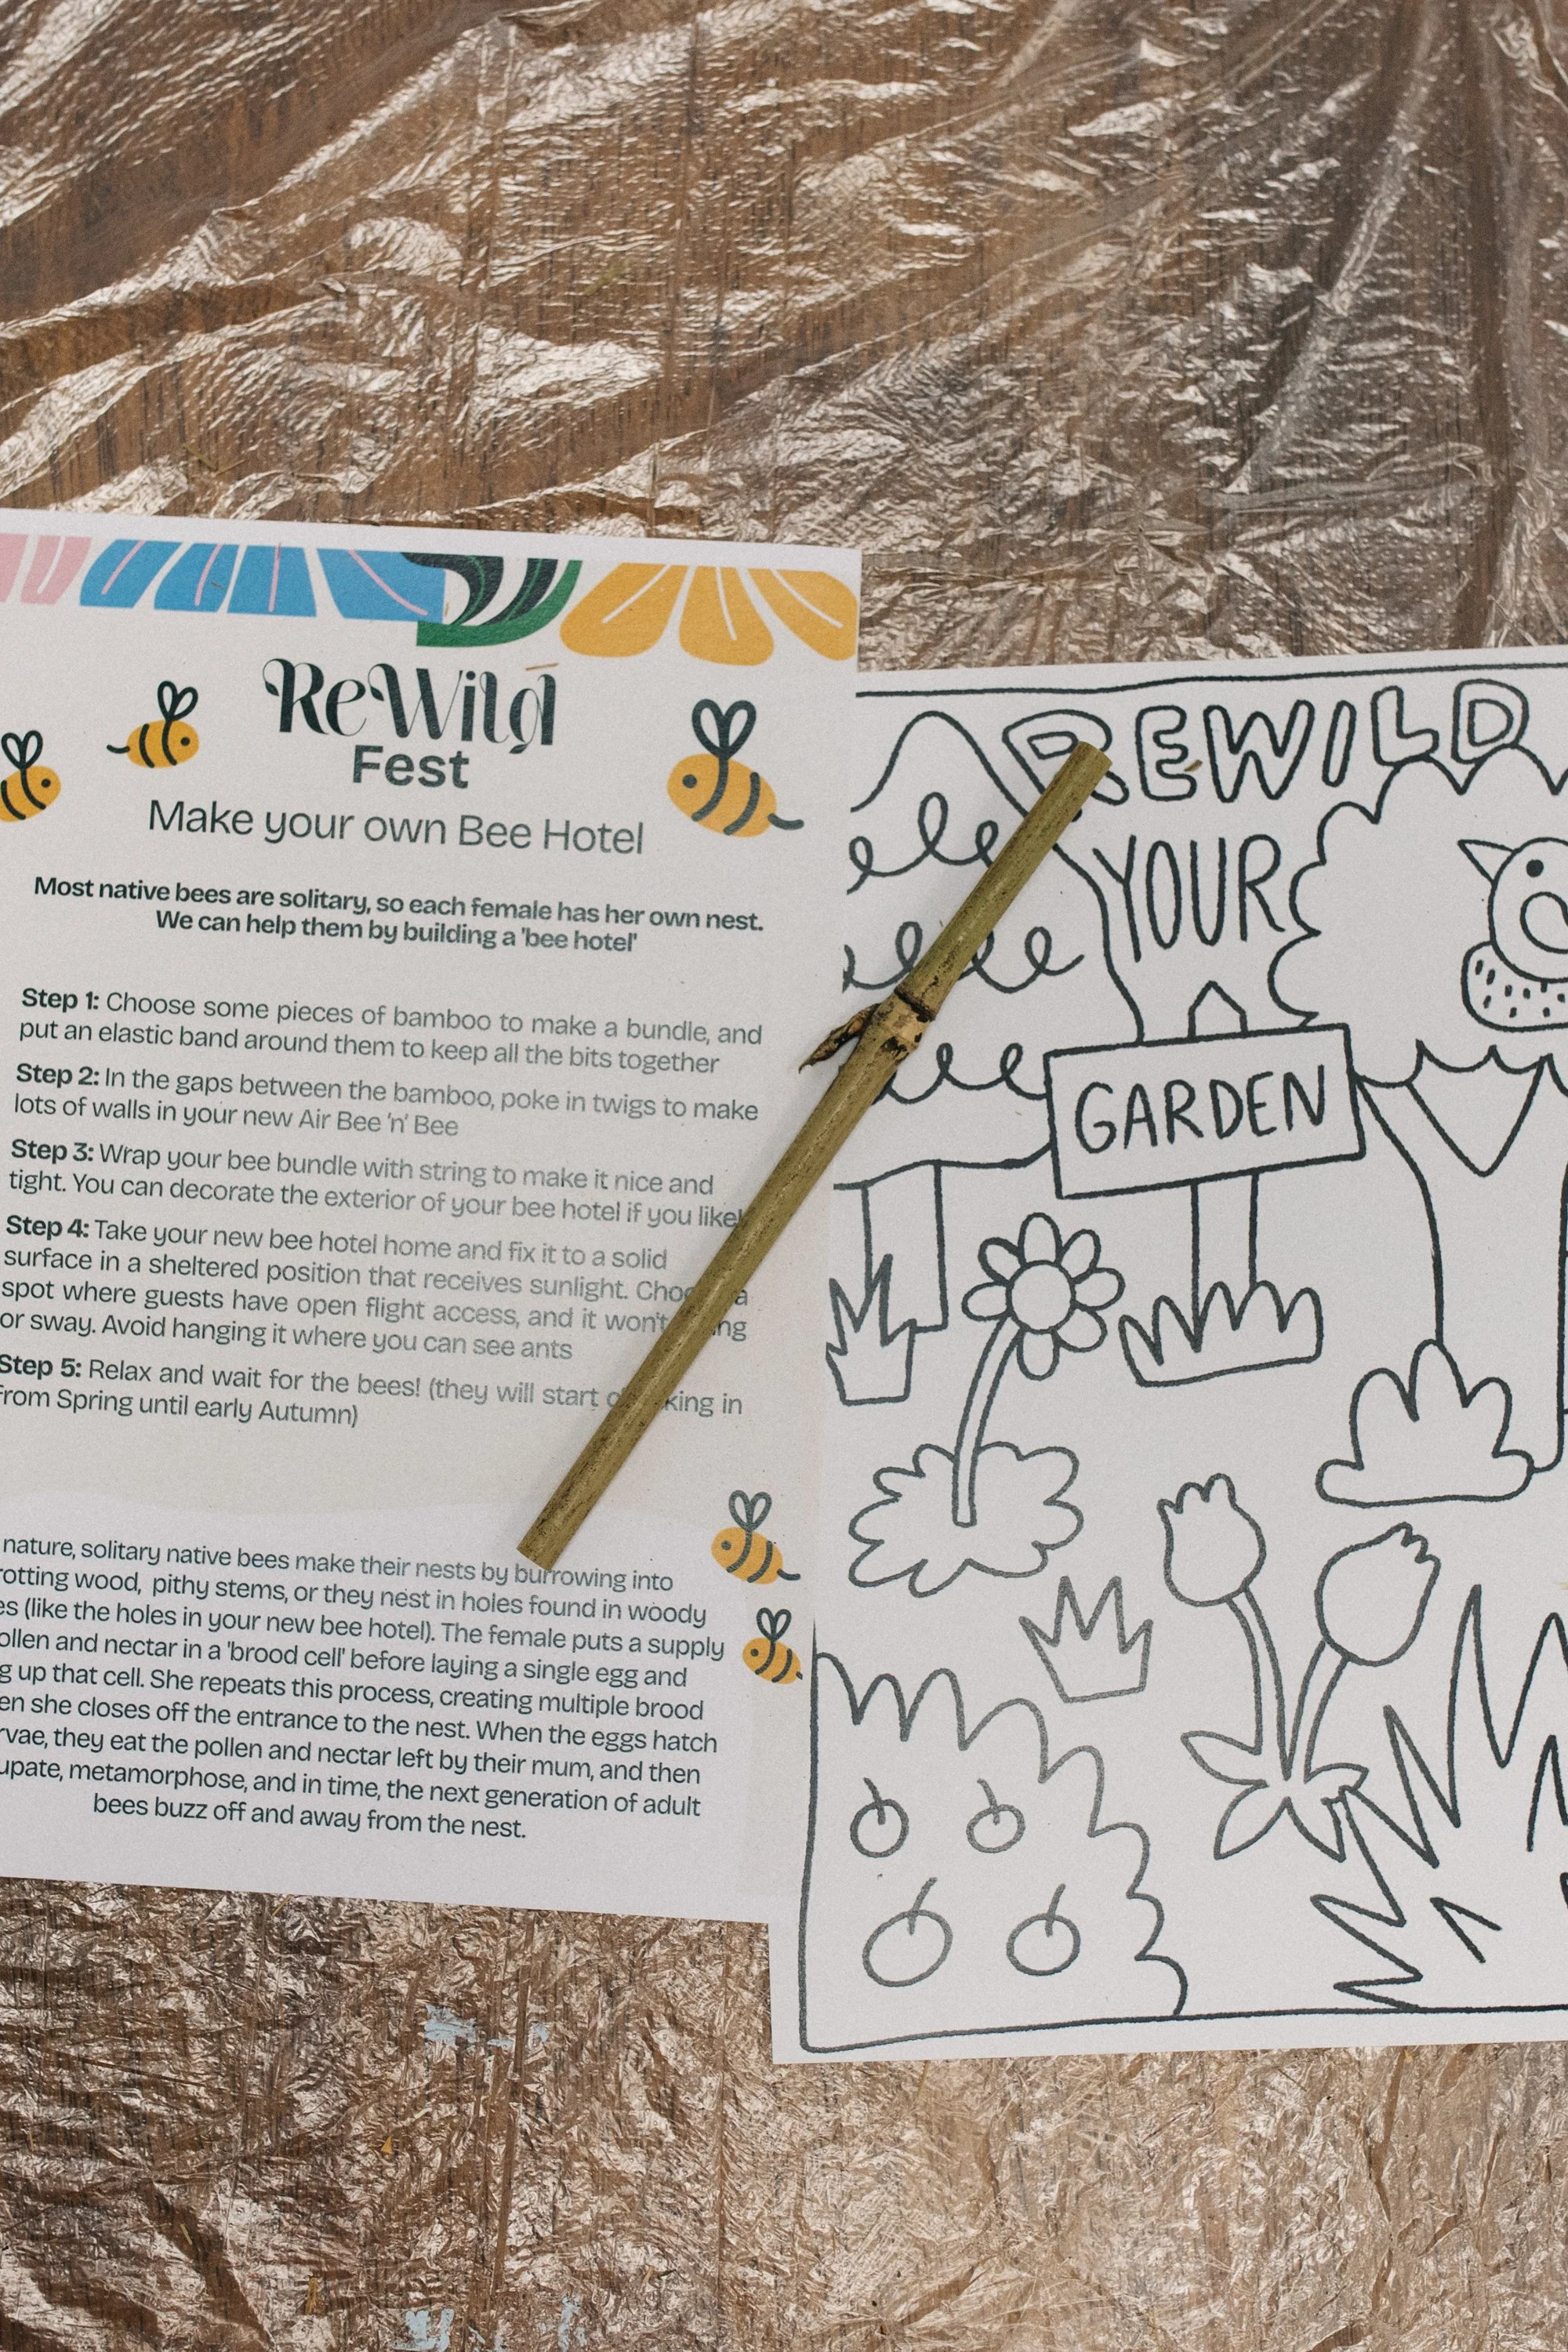 ReWild
Fest
Make your own Bee Hotel
Most native bees are solitary, so each female has her own nest.
We can help them by building a 'bee hotel'
Step 1: Choose some pieces of bamboo to make a bundle, and
put an elastic band around them to keep all the bits together
Step 2: In the gaps between the bamboo, poke in twigs to make
lots of walls in your new Air Bee 'n' Bee
Step 3: Wrap your bee bundle with string to make it nice and
tight. You can decorate the exterior of your bee hotel if you like!
Step 4: Take your new bee hotel home and fix it to a solid
surface in a sheltered position that receives sunlight. a
spot where guests have open flight access, and it won't
or sway. Avoid hanging it where you can see ants
Step 5: Relax and wait for the bees! (they will start in
from Spring until early Autumn)
nature, solitary native bees make their nests by burrowing into
rotting wood, pithy stems, or they nest in holes found in woody
(like the holes in your new bee hotel). The female puts a supply
pollen and nectar in a 'brood cell' before laying a single egg and
up that cell. She repeats this process, creating multiple brood
she closes off the entrance to the nest. When the eggs hatch
they eat the pollen and nectar left by their mum, and then
metamorphose, and in time, the next generation of adult
bees buzz off and away from the nest.
REWILD
YOUR
GARDEN